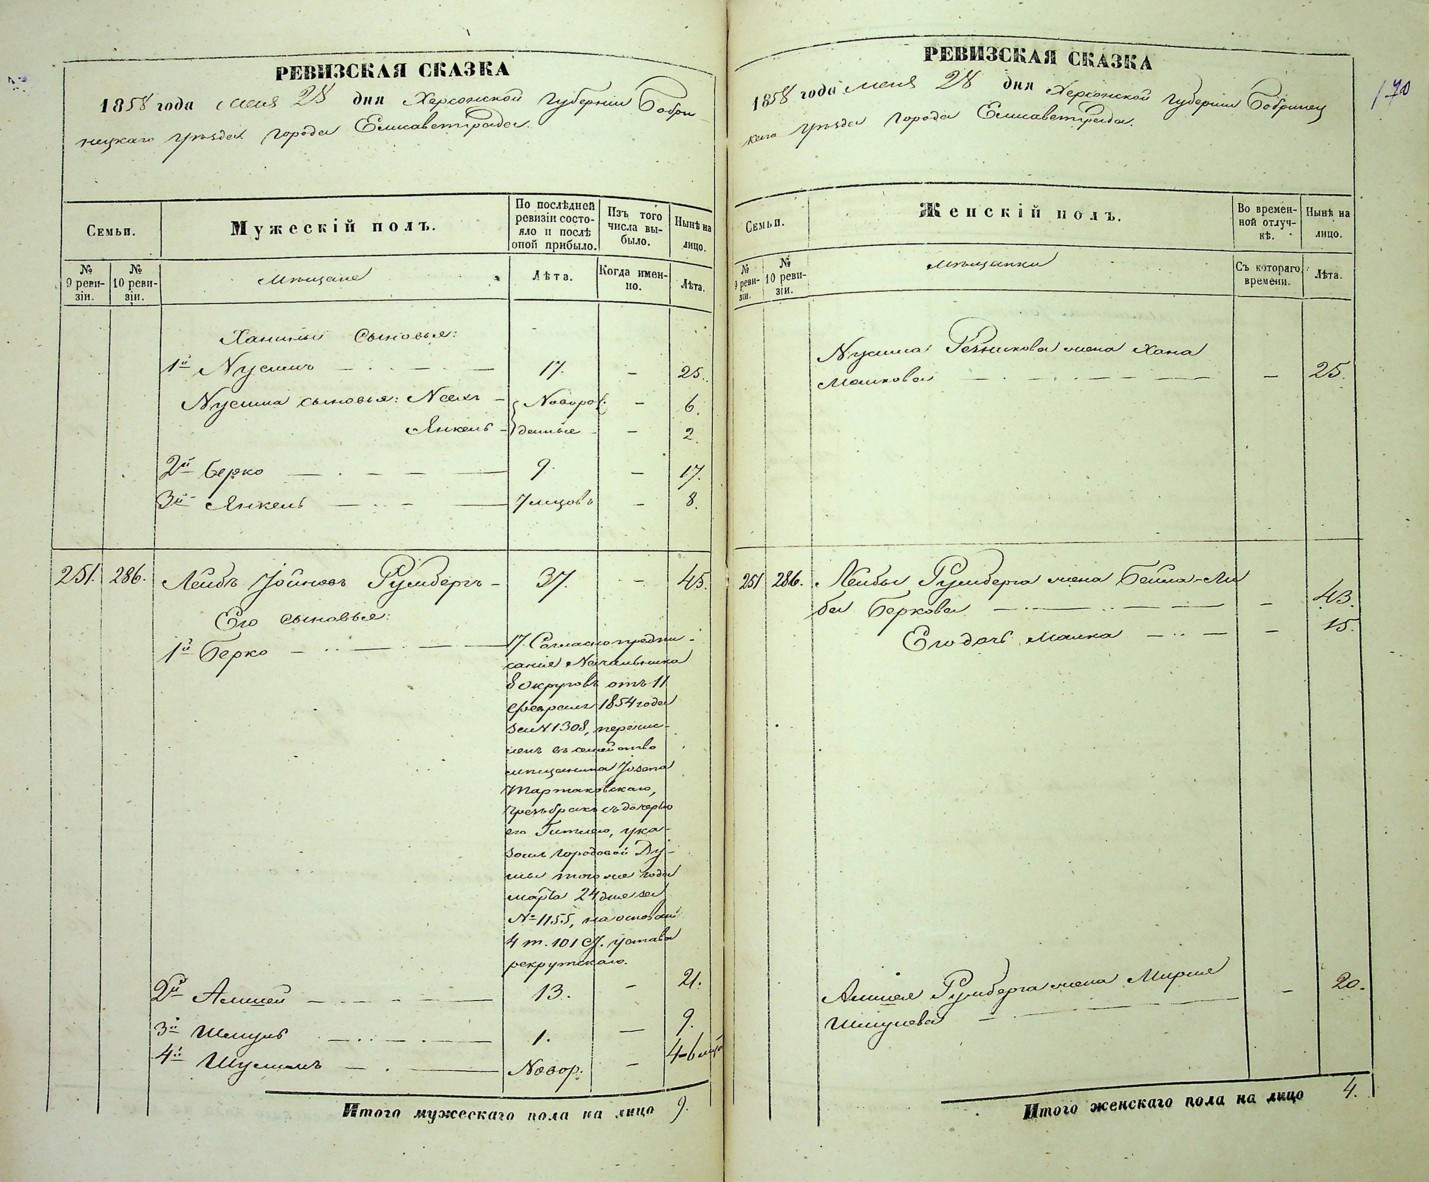 РЕВИЗСКАЯ СКАЗКА
1858 года мая 28 дня Херсонской Губернии Бобри
нецкаго уѣзда города Елисаветграда.
Семьи.
Мужескій полъ.
По послѣдней ревизіи состояло и послѣ опой прибыло.
Изъ того числа выбыло.
Нынѣ на лицо.
№ 9 ревизіи.
№ 10 ревизіи.
Мѣщане
Лѣта.
Когда именно.
Лѣта.
сыновья:
1й Нусинъ 17. - 25.
Нусина сыновья: { Новоро - 6.
Янкель } денные - 2.
2й Берко 9. - 17.
3й Янкель 7 мѣсцовъ - 8.
251. 286. Лейбъ Іойновъ Румбергъ 37. - 45.
Его сыновья:
1й Берко 17. Согласно предпи-
санія Начальника
8 округовъ отъ 11
февраля 1854 года
за №1308, перечис-
ленъ въ семейство
мѣщанина
его Гитлею, ука-
зомъ городовой Ду-
мы того же года
марта 24 дня за
№ 1155, на основаніи
4 т. 101 ст. устава
рекрутскаго.
2й 13. - 21.
3й Шмуль 1. - 9.
4й Новор. - 4-6 мѣс
Итого мужескаго пола на лицо 9.
РЕВИЗСКАЯ СКАЗКА
170
1858 года мая 28 дня Херсонской Губерніи Бобринец
каго уѣзда города Елисаветграда.
Семьи.
Женскій полъ.
Во временной отлучкѣ.
Нынѣ на лицо.
№ 9 ревизіи.
№ 10 ревизіи.
Мѣщанки
Съ котораго времени.
Лѣта.
Нусина Резникова жена Хана
- 25.
251 286. Лейбы Румберга жена Бейла-Ли
ба Беркова - 43.
Его дочь Малка - 15.
Румберга жена
Шмулева - 20.
Итого женскаго пола на лицо 4.